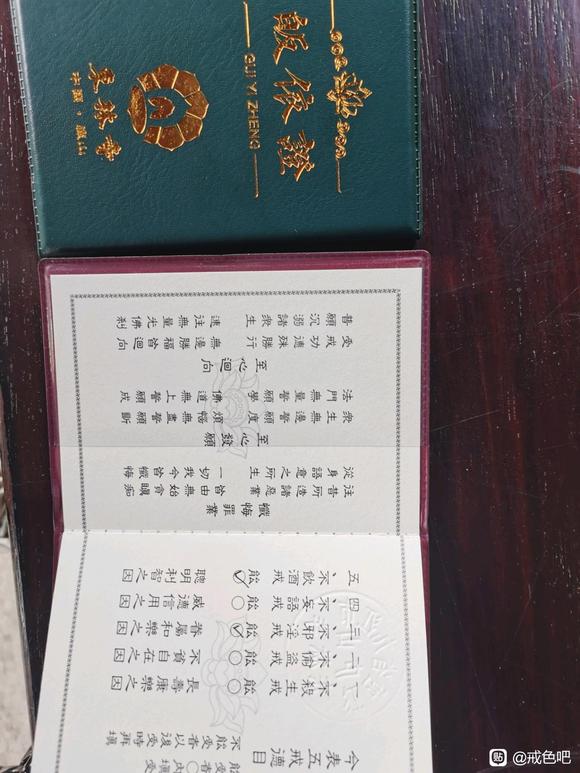 皈依證
GUI YI ZHENG
東林寺
中國·廬山
今表五戒德目
不能受者以後受時再填
一、不殺生戒 能○ 長壽康樂之因
二、不偷盜戒 能○ 不貧自在之因
三、不邪淫戒 能✓ 眷屬和樂之因
四、不妄語戒 能○ 威德信用之因
五、不飲酒戒 能✓ 聰明利智之因
懺悔罪業
往昔所造諸惡業 皆由無始貪瞋痴
從身語意之所生 一切我今皆懺悔
至心發願
眾生無邊誓願度 煩惱無盡誓願斷
法門無量誓願學 佛道無上誓願成
至心迴向
受戒功德殊勝行 無邊勝福皆迴向
普願沉溺諸眾生 速往無量光佛剎
貼 @戒色吧